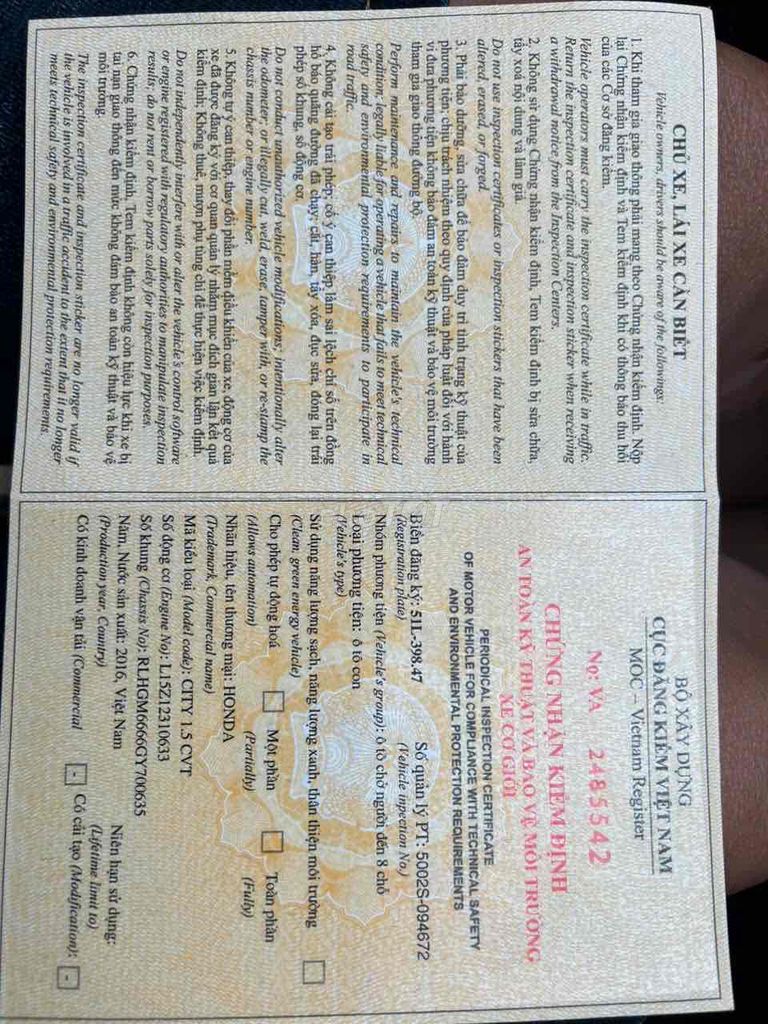 CHỦ XE, LÁI XE CẦN BIẾT
Vehicle owners, drivers should be aware of the followings:
1. Khi tham gia giao thông phải mang theo Chứng nhận kiểm định. Nộp
lại Chứng nhận kiểm định và Tem kiểm định khi có thông báo thu hồi
của các Cơ sở đăng kiểm.
Vehicle operators must carry the inspection certificate while in traffic.
Return the inspection certificate and inspection sticker when receiving
a withdrawal notice from the Inspection Centers.
2. Không sử dụng Chứng nhận kiểm định, Tem kiểm định bị sửa chữa,
tẩy xoá nội dung và làm giả.
Do not use inspection certificates or inspection stickers that have been
altered, erased, or forged.
3. Phải bảo dưỡng, sửa chữa để bảo đảm duy trì tình trạng kỹ thuật của
phương tiện, chịu trách nhiệm theo quy định của pháp luật đối với hành
vi đưa phương tiện không bảo đảm an toàn kỹ thuật và bảo vệ môi trường
tham gia giao thông đường bộ.
Perform maintenance and repairs to maintain the vehicle's technical
condition, legally liable for operating a vehicle that fails to meet technical
safety and environmental protection requirements to participate in
road traffic.
4. Không cải tạo trái phép; cố ý can thiệp làm sai lệch chỉ số trên đồng
hồ báo quãng đường đã chạy; cắt, hàn, tẩy xóa, đục sửa, đóng lại trái
phép số khung, số động cơ.
Do not conduct unauthorized vehicle modifications; intentionally alter
the odometer, or illegally cut, weld, erase, tamper with, or re-stamp the
chassis number or engine number.
5. Không tự ý can thiệp, thay đổi phần mềm điều khiển của xe, động cơ của
xe đã được đăng ký với cơ quan quản lý nhằm mục đích gian lận kết quả
kiểm định; Không thuê, mượn phụ tùng chỉ để thực hiện việc kiểm định.
Do not independently interfere with or alter the vehicle's control software
or engine registered with regulatory authorities to manipulate inspection
results; do not rent or borrow parts solely for inspection purposes.
6. Chứng nhận kiểm định, Tem kiểm định không còn hiệu lực khi xe bị
tai nạn giao thông đến mức không đảm bảo an toàn kỹ thuật và bảo vệ
môi trường
The inspection certificate and inspection sticker are no longer valid if
the vehicle is involved in a traffic accident to the extent that it no longer
meets technical safety and environmental protection requirements.
BỘ XÂY DỰNG
CỤC ĐĂNG KIỂM VIỆT NAM
MOC – Vietnam Register
No: VA 2485542
CHỨNG NHẬN KIỂM ĐỊNH
AN TOÀN KỸ THUẬT VÀ BẢO VỆ MÔI TRƯỜNG
XE CƠ GIỚI
PERIODICAL INSPECTION CERTIFICATE
OF MOTOR VEHICLE FOR COMPLIANCE WITH TECHNICAL SAFETY
AND ENVIRONMENTAL PROTECTION REQUIREMENTS
Biển đăng ký: 51L-398.47 Số quản lý PT: 5002S-094672
(Registration plate) (Vehicle inpection No.)
Nhóm phương tiện (Vehicle's group): ô tô chở người đến 8 chỗ
Loại phương tiện: ô tô con
(Vehicle's type)
Sử dụng năng lượng sạch, năng lượng xanh, thân thiện môi trường
(Clean, green energy vehicle)
Cho phép tự động hoá Một phần Toàn phần
(Allows automation) (Partially) (Fully)
Nhãn hiệu, tên thương mại: HONDA
(Trademark, Commercial name)
Mã kiểu loại (Model code): CITY 1.5 CVT
Số động cơ (Engine No): L15Z12310633
Số khung (Chassis No): RLHGM6666GY700635
Năm, Nước sản xuất: 2016, Việt Nam Niên hạn sử dụng:
(Production year, Country) (Lifetime limit to)
Có kinh doanh vận tải (Commercial - Có cải tạo (Modification): -